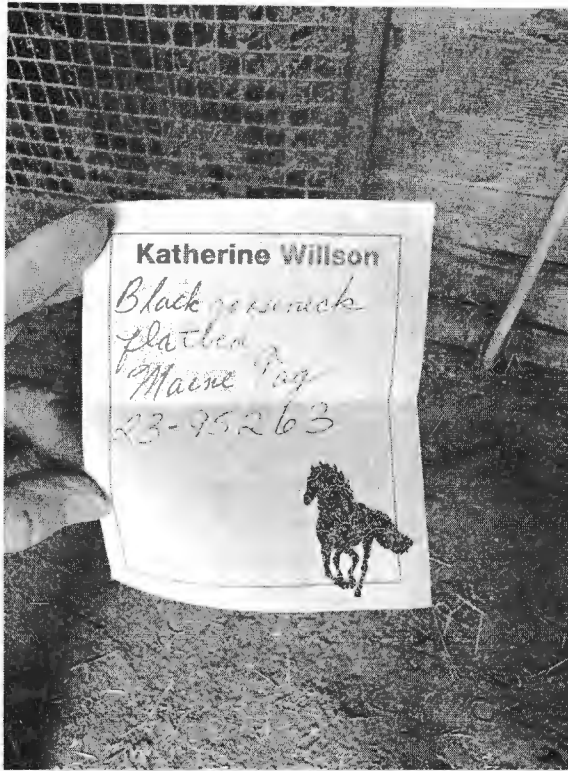 Katherine Willson
Black gooseneck
flatbed
Maine Tag
23-95263